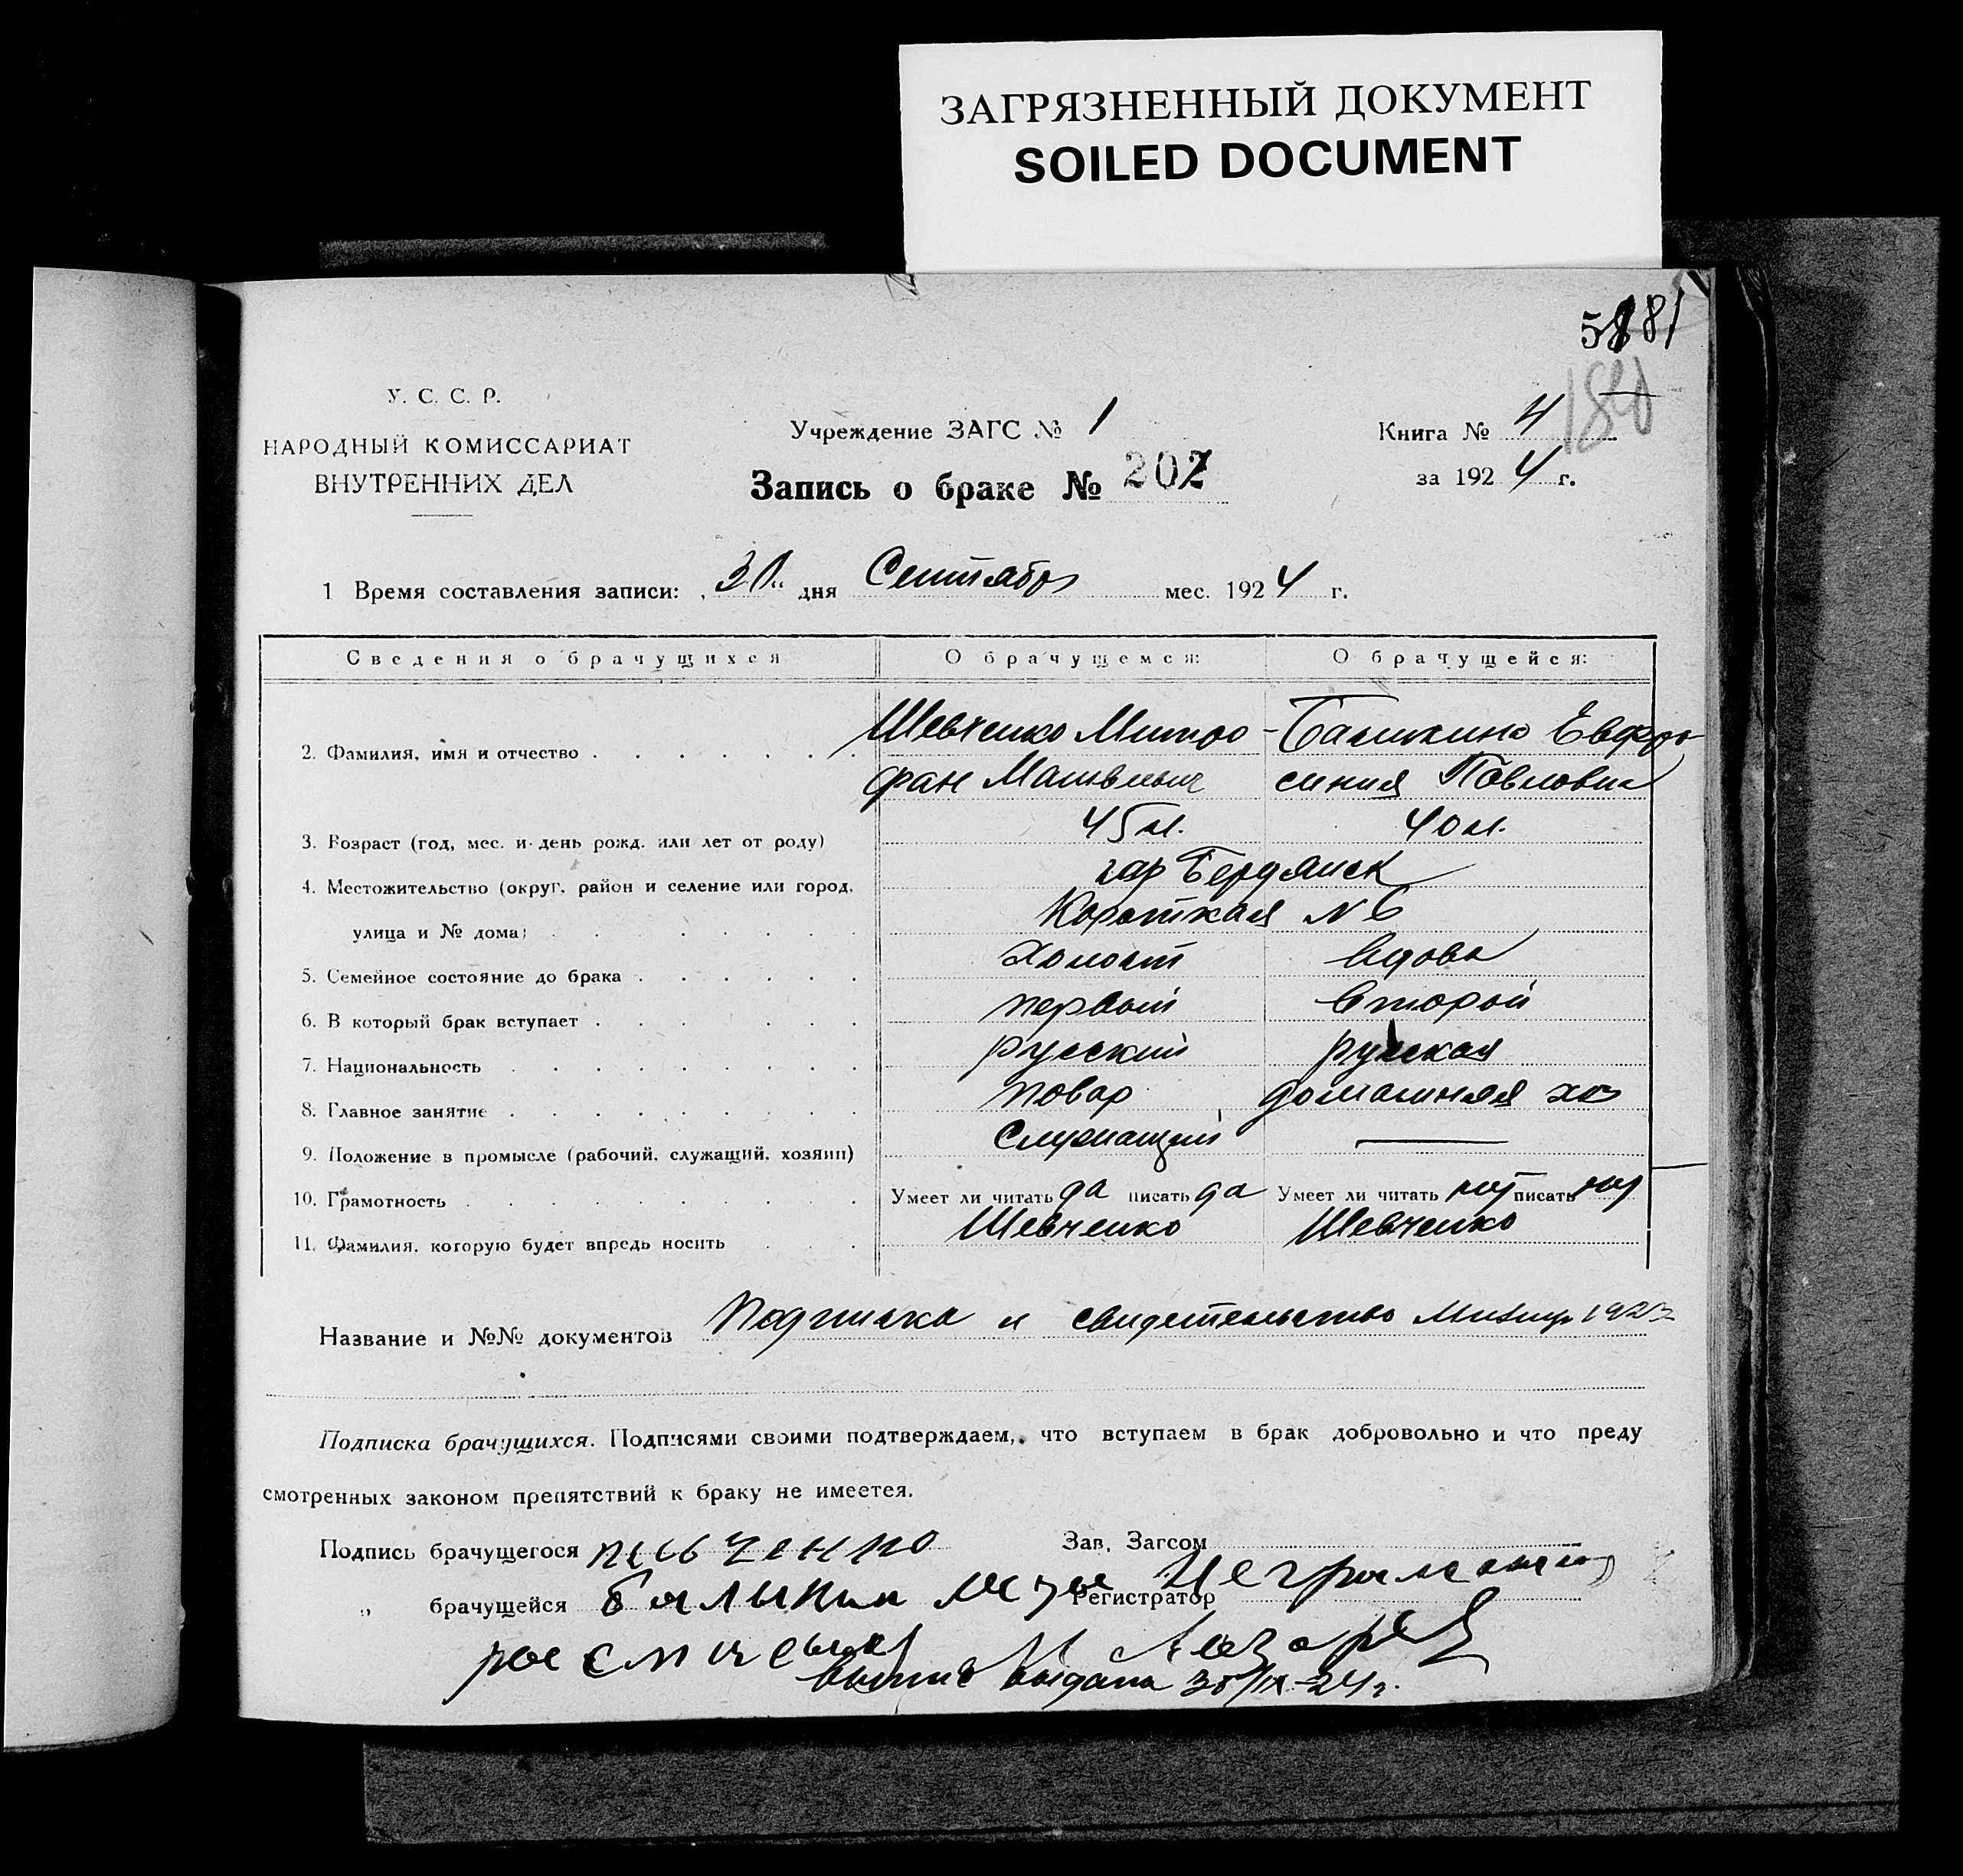 ЗАГРЯЗНЕННЫЙ ДОКУМЕНТ
SOILED DOCUMENT
181
180
У. С. С. Р.
НАРОДНЫЙ КОМИССАРИАТ
ВНУТРЕННИХ ДЕЛ
Учреждение ЗАГС № 1
Запись о браке № 202
Книга № 4
за 1924 г.
1 Время составления записи: дня Сентября мес. 1924 г.
Сведения о брачущихся О брачущемся: О брачущейся:
2. Фамилия, имя и отчество Шевченко Митро- Евфро-
фан Матвеевич синия Павловна
3. Возраст (год, мес. и день рожд. или лет от роду) 45 л. 40 л.
4. Местожительство (округ, район и селение или город, гор Бердянск
улица и № дома) Короткая № 6
5. Семейное состояние до брака холост вдова
6. В который брак вступает первый второй
7. Национальность русский русская
8. Главное занятие повар домашняя хоз
9. Положение в промысле (рабочий, служащий, хозяин) Служащий —
10. Грамотность Умеет ли читать да писать да Умеет ли читать нет писать нет
11. Фамилия, которую будет впредь носить Шевченко Шевченко
Название и №№ документов Подписка и свидетельство
Подписка брачущихся. Подписями своими подтверждаем, что вступаем в брак добровольно и что преду
смотренных законом препятствий к браку не имеется.
Подпись брачущегося Зав. Загсом
„ брачущейся Регистратор
выдана 30/IX-24 г.